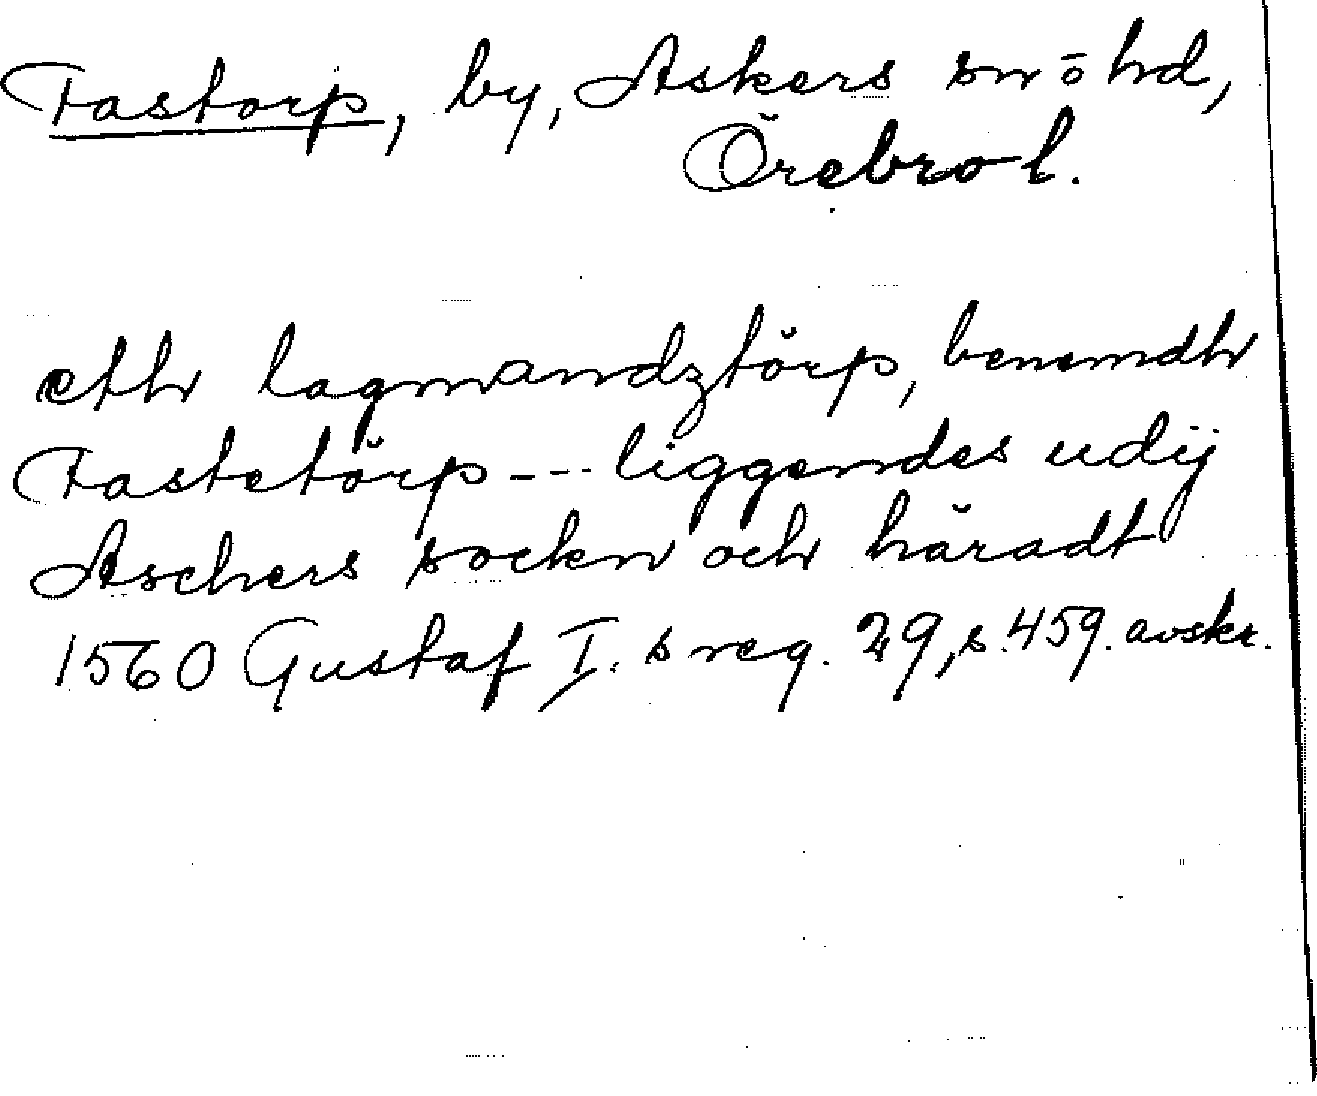 Fastorp, by, Askers sn o hd,
Örebro l.
eth lagmandztörp, benemdh
Fastetörp --- liggendes udij
Aschers sockn och häradt
1560 Gustaf I. s reg. 29, s. 459. avskr.